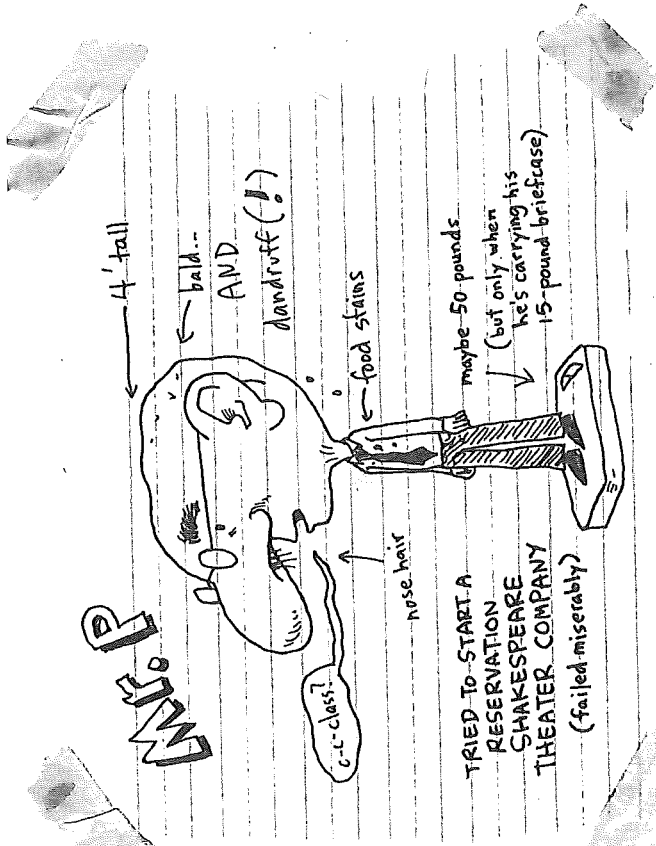 Mr. P
4' tall
bald...
AND
dandruff (!)
food stains
c-c-class?
nose hair
maybe 50 pounds
(but only when
he's carrying his
15-pound briefcase)
TRIED TO START A
RESERVATION
SHAKESPEARE
THEATER COMPANY
(failed miserably)